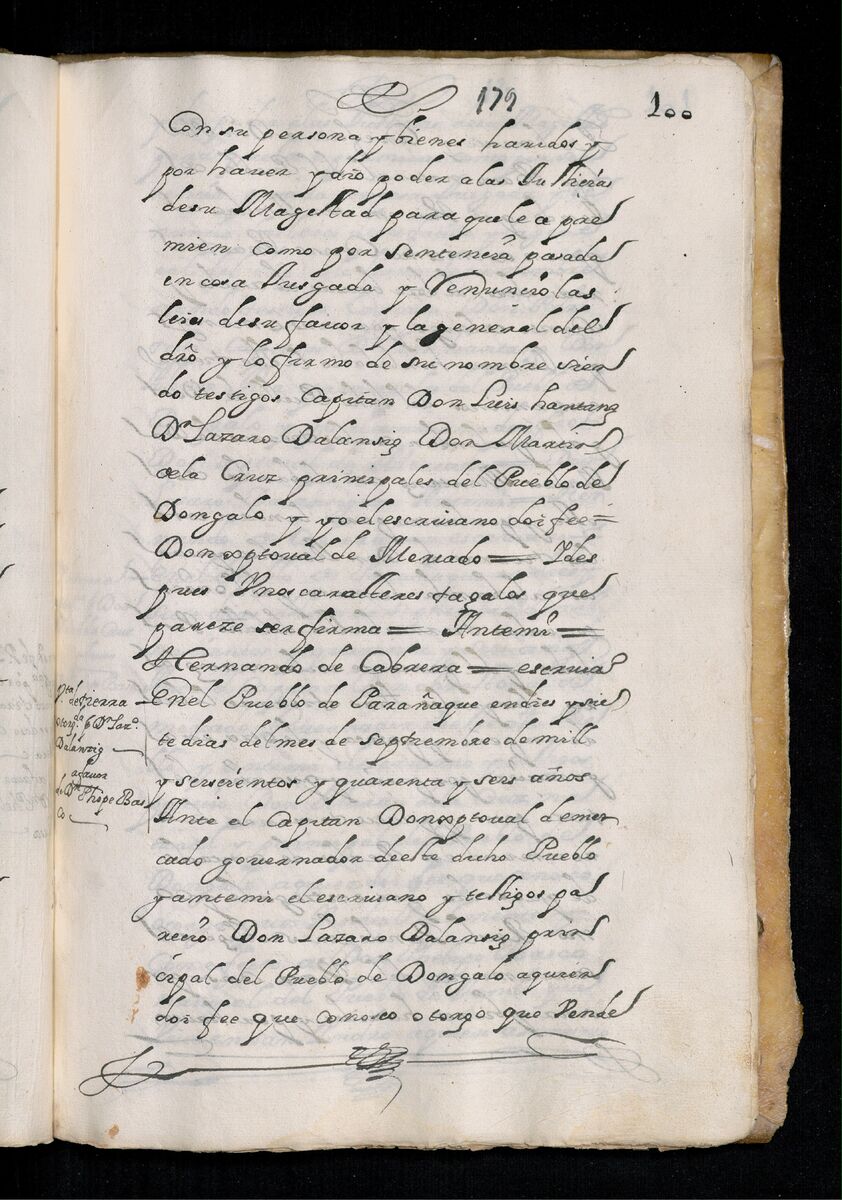 179
100
Con su persona y bienes havidos y
por haver y dio poder a las Justicias
de su Magestad para que le a pre
mien como por sentencia pasada
en cosa Jusgada y Renuncio las
leies de su favor y la general del
dro y lo firmo de su nombre sien
do testigos Capitan Don Luis hantang
Dn Lazaro Dalansig Don Martin
de la Cruz principales del Pueblo de
Dongalo y yo el escrivano doi fee =
Don xptoval de Mercado = Ides
pues Vnos caracteres tagalos que
pareze ser firma = Antemi =
Hernando de Cabrera = escriva
Enel Pueblo de Parañaque en dies y sie
te dias del mes de septiembre de mill
y seiscientos y quarenta y seis años
Ante el Capitan Don xptoval de mer
cado governador deeste dicho Pueblo
y antemi el escrivano y testigos pa
recio Don Lazaro Dalansig prin
cipal del Pueblo de Dongalo aquien
doi fee que conosco otorgo que Vende
Vta de tierra
otorgda Dn Lazo
Dalanzig
a favor
de Dn Phepe Bas
co